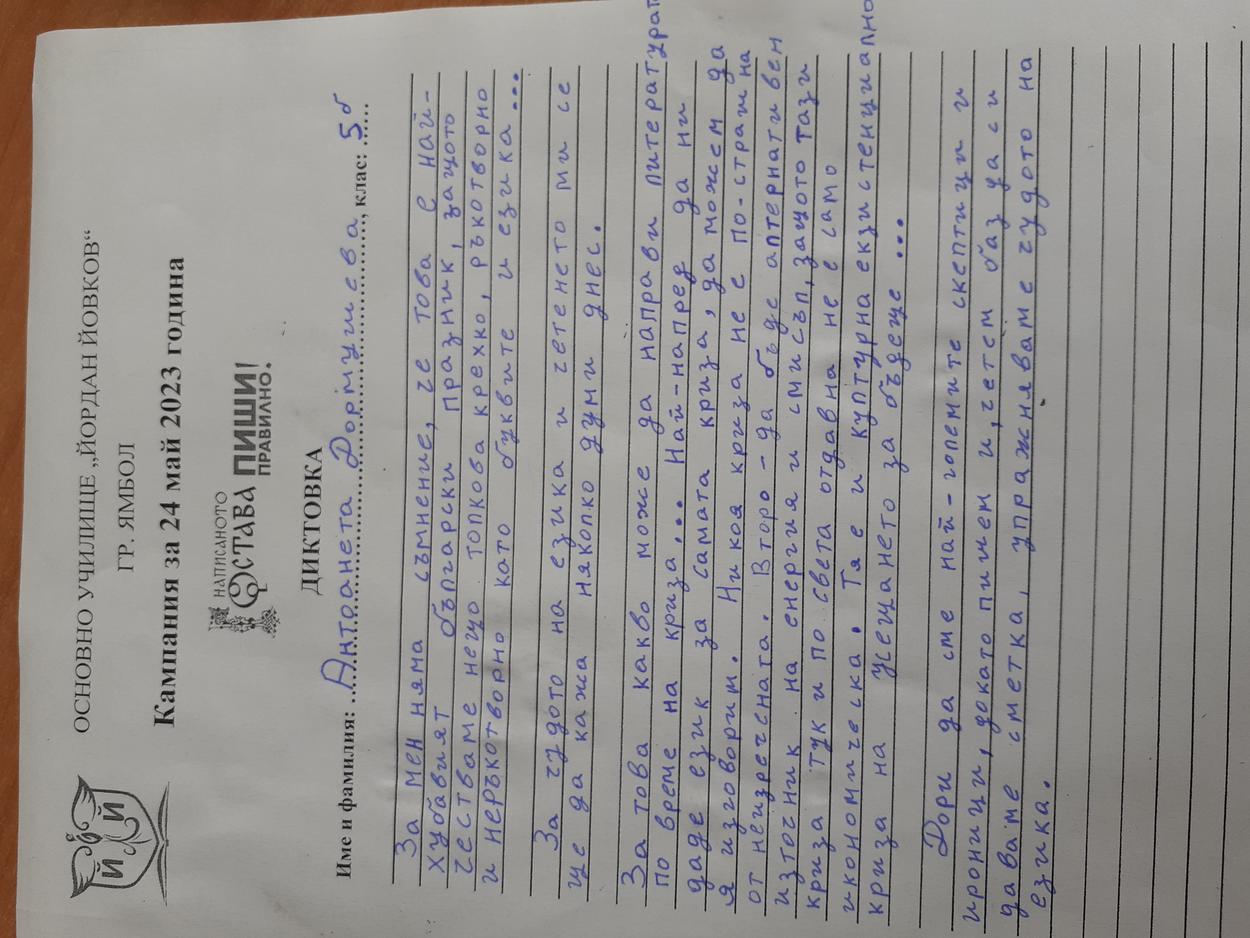 ОСНОВНО УЧИЛИЩЕ „ЙОРДАН ЙОВКОВ“
ГР. ЯМБОЛ
Кампания за 24 май 2023 година
НАПИСАНОТО
ОСТАВА ПИШИ
ПРАВИЛНО!
ДИКТОВКА
Име и фамилия: Антоанета Дормушева, клас: 5б
За мен няма съмнение, че това е най-
хубавият български празник, защото
честваме нещо толкова крехко, ръкотворно
и неръкотворно като буквите и езика...
За чудото на езика и четенето ми се
ще да кажа няколко думи днес.
За това какво може да направи литерат
по време на криза... Най-напред да ни
даде език за самата криза, да можем да
я изговорим. Никоя криза не е по-страшна
от неизречената. Второ - да бъде алтернативен
източник на енергия и смисъл, защото тази
криза тук и по света отдавна не е само
икономическа. Тя е и културна екзистенциално
криза на усещането за бъдеще ...
Дори да сме най-големите скептици и
ироници, докато пишем и, четем баз да си
даваме сметка, упражняваме чудото на
езика.
Й Й